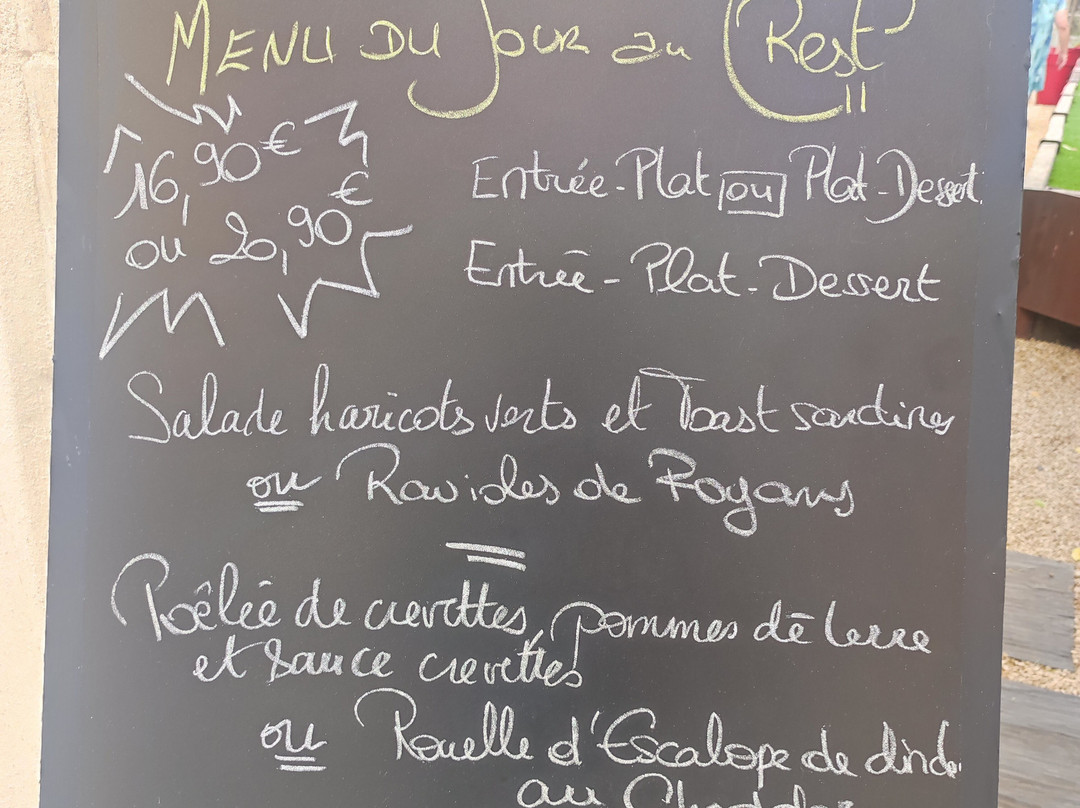 MENU DU Jour au CRest
16,90€
ou 20,90€
Entrée-Plat ou Plat-Dessert
Entrée-Plat-Dessert
Salade haricots verts et Toast sardines
ou Ravioles de Royans
Poêlée de crevettes, pommes de terre
et sauce crevettes
ou Rouelle d'Escalope de dinde
au Cheddar